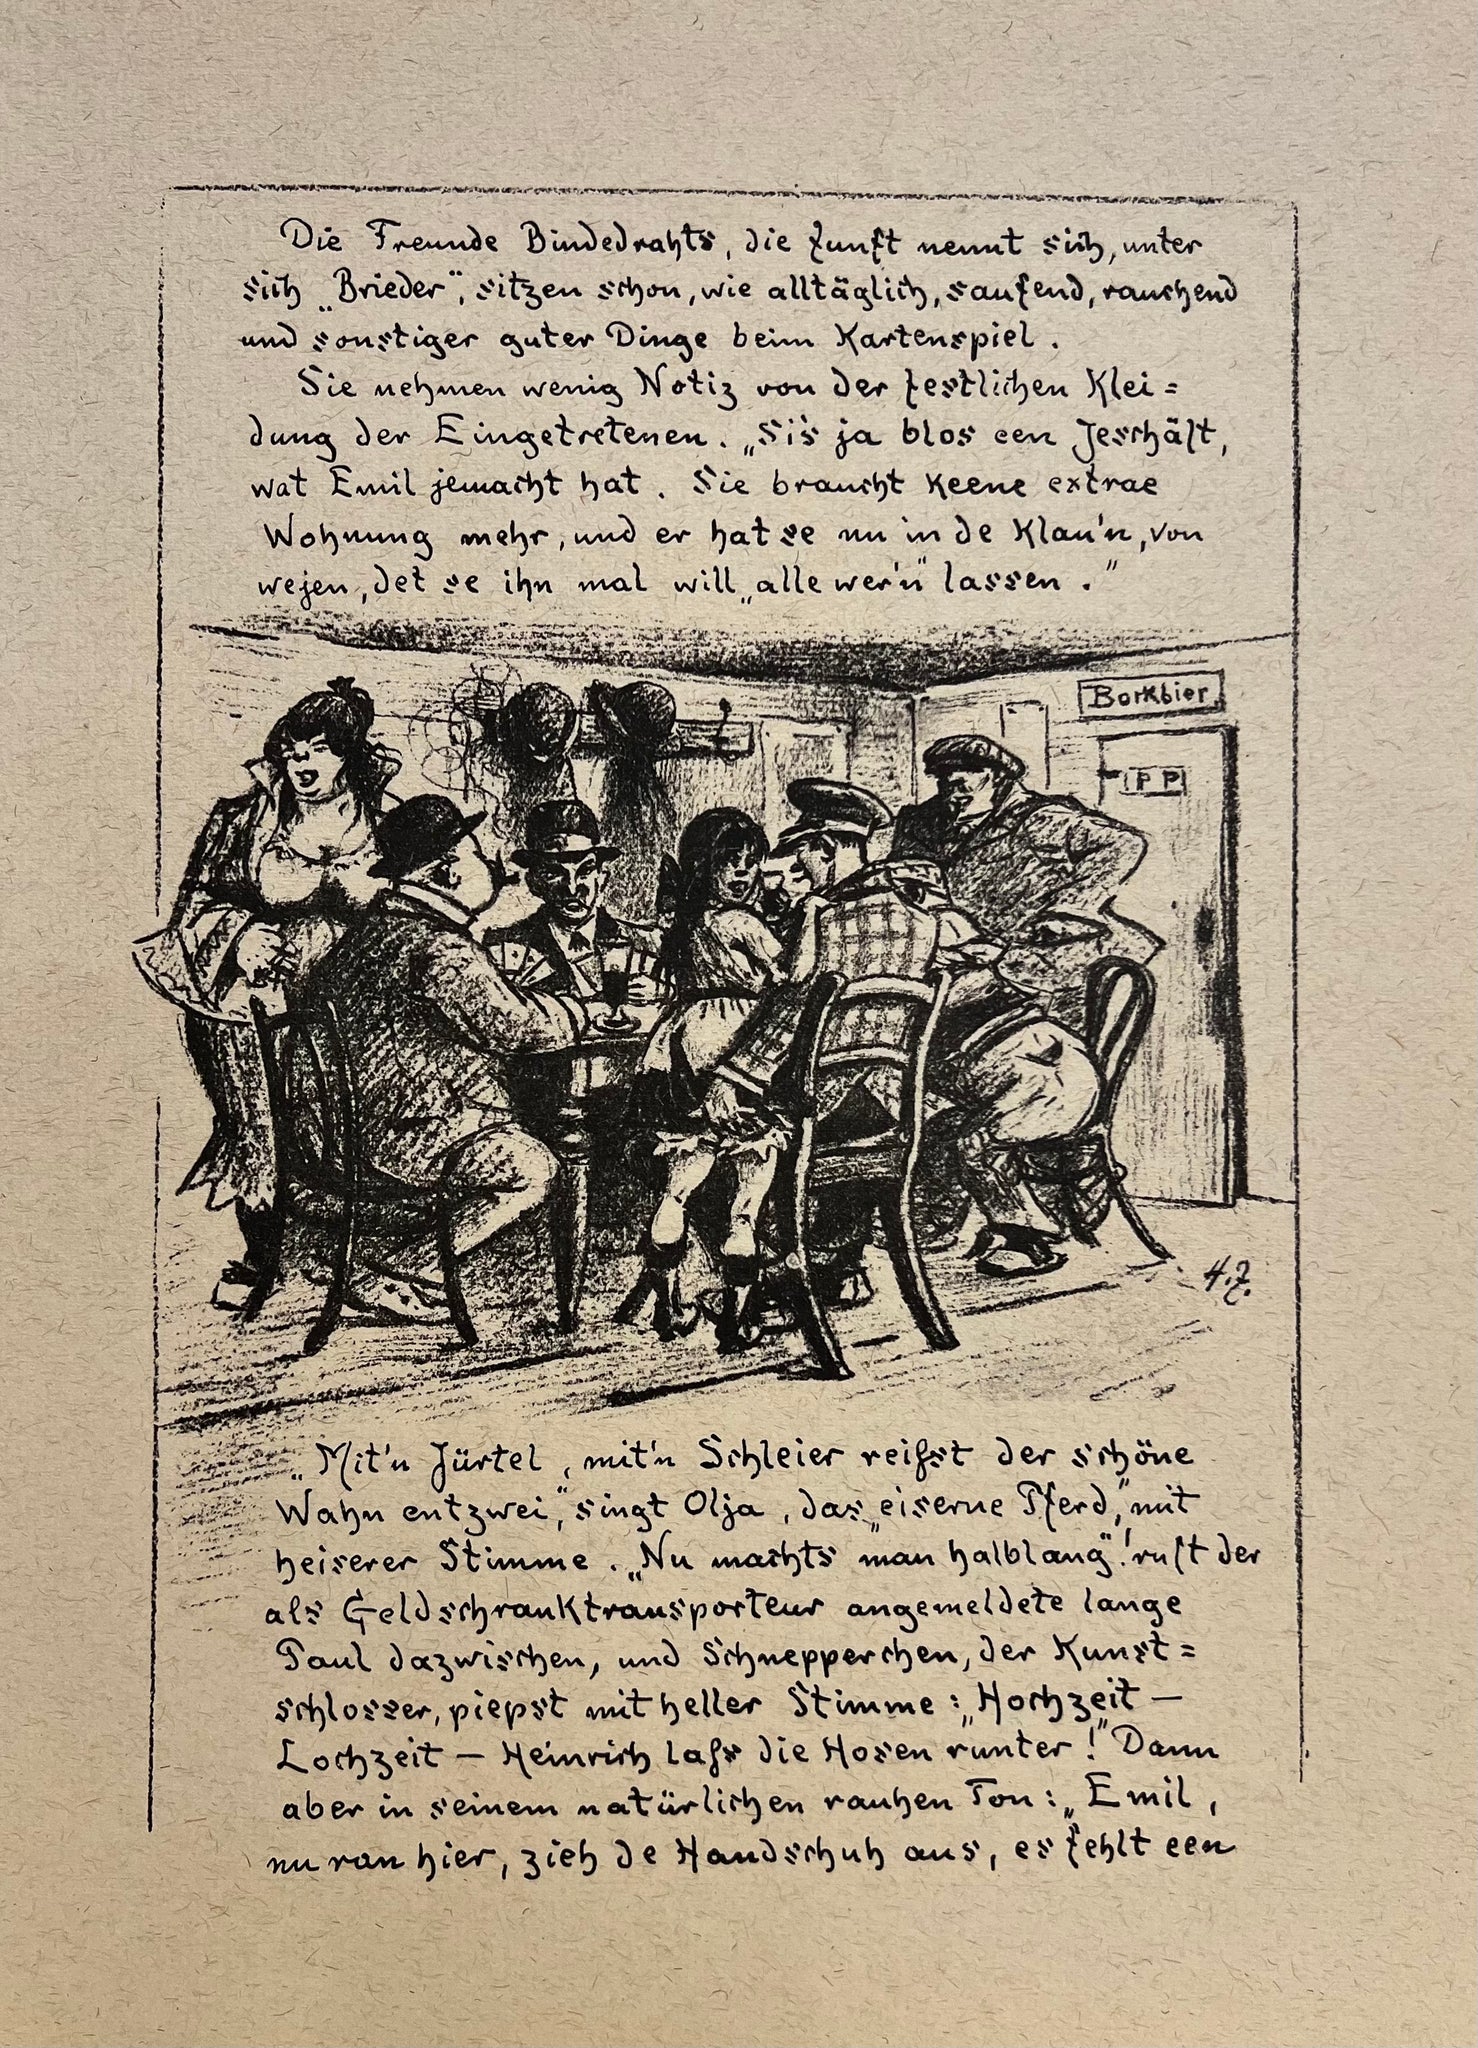 Die Freunde Bindedrahts, die Zunft nennt sich, unter
sich „Brieder“, sitzen schon, wie alltäglich, saufend, rauchend
und sonstiger guter Dinge beim Kartenspiel.
Sie nehmen wenig Notiz von der festlichen Klei=
dung der Eingetretenen. „Sis ja blos een Jeschäft,
wat Emil jemacht hat. Sie braucht keene extrae
Wohnung mehr, und er hat se nu in de Klau'n, von
wejen, det se ihn mal will „alle wer'n“ lassen.“
Bockbier
PP
H.Z.
„Mit'n Jürtel, mit'n Schleier reißt der schöne
Wahn entzwei,“ singt Olja, das „eiserne Pferd,“ mit
heiserer Stimme. „Nu machts man halblang“! ruft der
als Geldschranktransporteur angemeldete lange
Paul dazwischen, und Schnepperchen, der Kunst=
schlosser, piepst mit heller Stimme: „Hochzeit —
Lochzeit — Heinrich laß die Hosen runter!“ Dann
aber in seinem natürlichen rauhen Ton: „Emil,
nu ran hier, zieh de Handschuh aus, es fehlt een